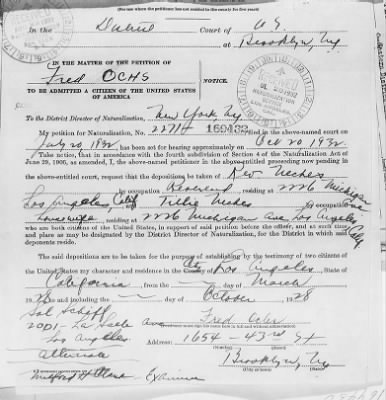 (For use where the petitioner has not resided in the county for five years)
In the District Court of U.S.
at Brooklyn, Ny
IN THE MATTER OF THE PETITION OF
Fred OCHS
NOTICE.
TO BE ADMITTED A CITIZEN OF THE UNITED STATES
OF AMERICA
To the District Director of Naturalization, New York Ny
My petition for Naturalization, No. 169432, filed in the above-named court on
July 20, has been set for hearing approximately on Oct 20 1932
Take notice, that in accordance with the fourth subdivision of Section 4 of the Naturalization Act of
June 29, 1906, as amended, I, the above-named petitioner in the above-entitled proceeding now pending in
the above-entitled court, request that the depositions be taken of Rev
by occupation Reverend, residing at 2226 Michigan
Los Angeles, Calif Tillie by occu-
Housewife, residing at 2226 Michigan Ave Los Angeles
who are both citizens of the United States, in support of said petition before the officer, and at such time
and place as may be designated by the District Director of Naturalization, for the District in which said
deponents reside.
The said depositions are to be taken for the purpose of establishing by the testimony of two citizens of
the United States my character and residence in the City of Los Angeles, State of
California from the day of March
and including the day of October, 1928
Sol Schiff Fred Ochs
2001 - La
Los Angeles. Address: 1654 - 43rd St
alternate
Brooklyn, Ny
Examiner